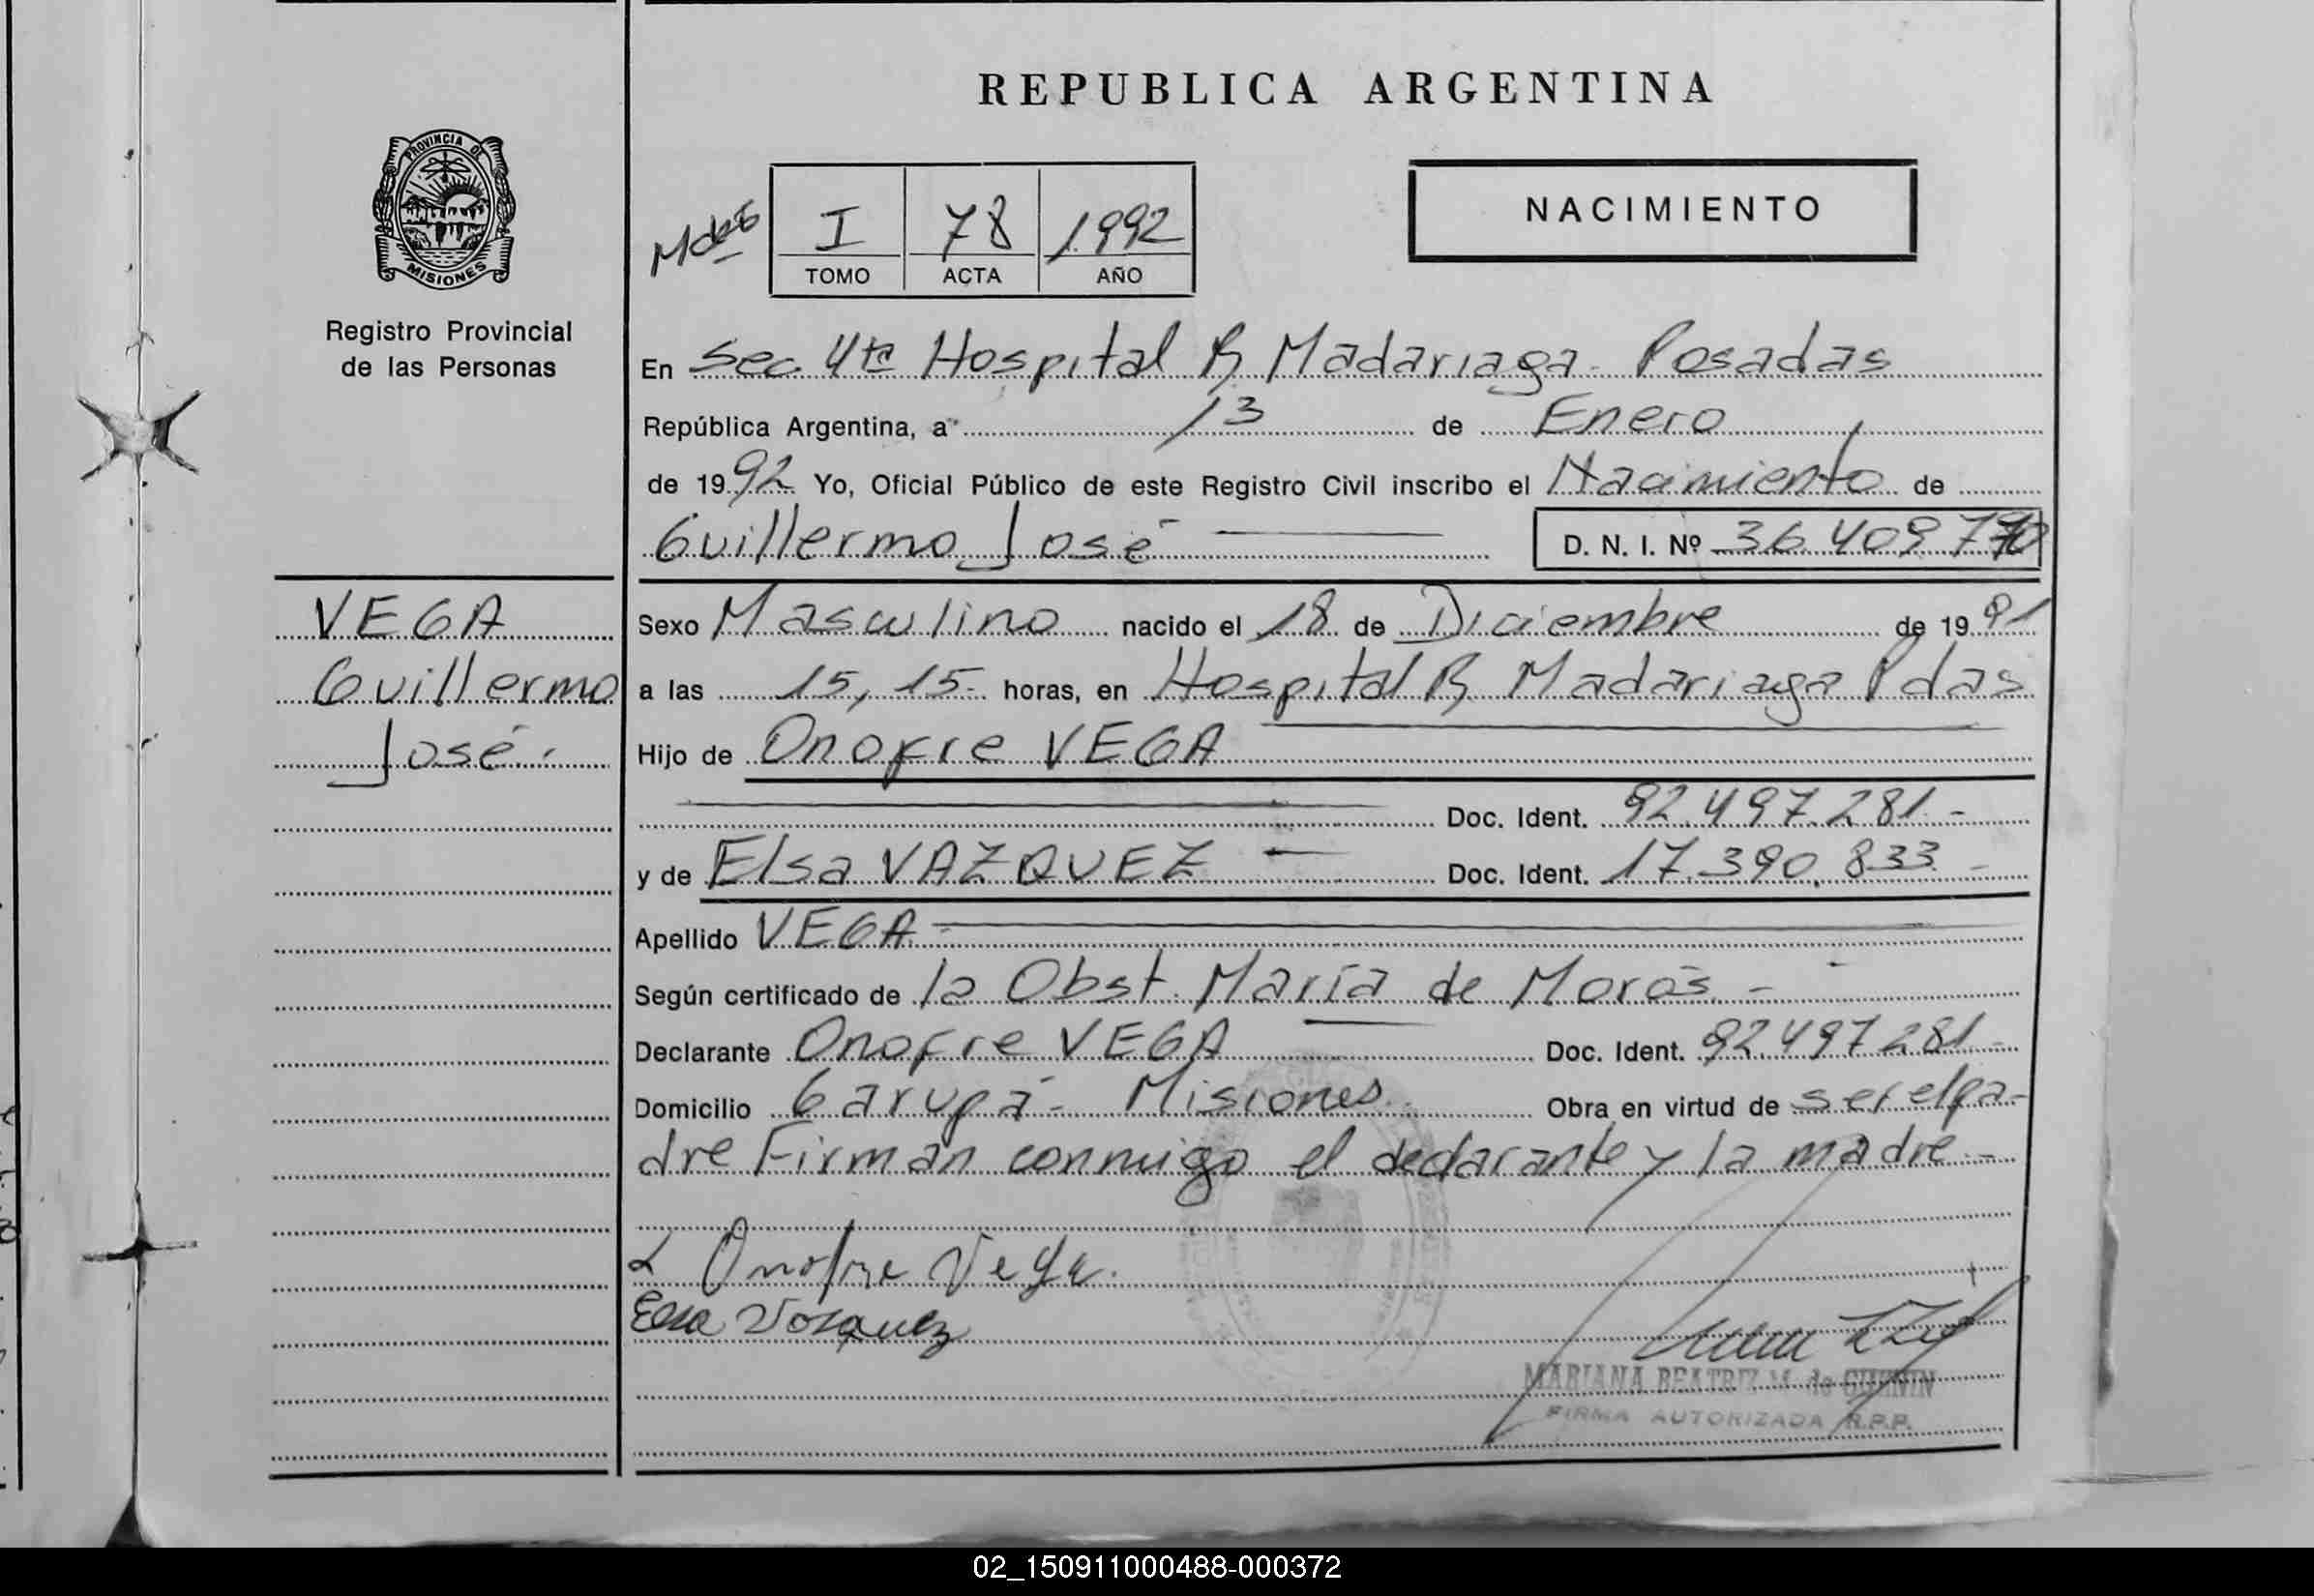 REPUBLICA ARGENTINA
PROVINCIA DE
MISIONES
Registro Provincial
de las Personas
I 78 1992
TOMO ACTA AÑO
NACIMIENTO
En Sec. 4ta Hospital R Madariaga - Posadas
República Argentina, a 13 de Enero
de 1992 Yo, Oficial Público de este Registro Civil inscribo el Nacimiento de
Guillermo José D. N. I. Nº 36.409.7
VEGA
Guillermo
José.
Sexo Masculino nacido el 18 de Diciembre de 1991
a las 15,15- horas, en Hospital R Madariaga Pdas
Hijo de Onofre VEGA
Doc. Ident. 92.497.281.-
y de Elsa VAZQUEZ - Doc. Ident. 17.390.833 -
Apellido VEGA -
Según certificado de la Obst. María de Morás. -
Declarante Onofre VEGA Doc. Ident. 92.497281-
Domicilio Garupá- Misiones. Obra en virtud de ser el pa-
dre Firman conmigo el declarante y la madre.-
Onofre Vega.
Elsa Vazquez
MARIANA BEATRIZ M. de GUENIN
FIRMA AUTORIZADA R.P.P.
02_150911000488-000372